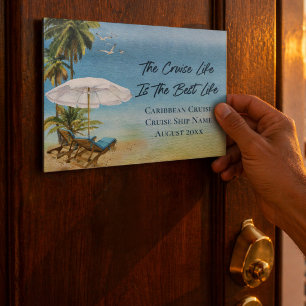 The Cruise Life
Is The Best Life
Caribbean Cruise
Cruise Ship Name
August 20XX